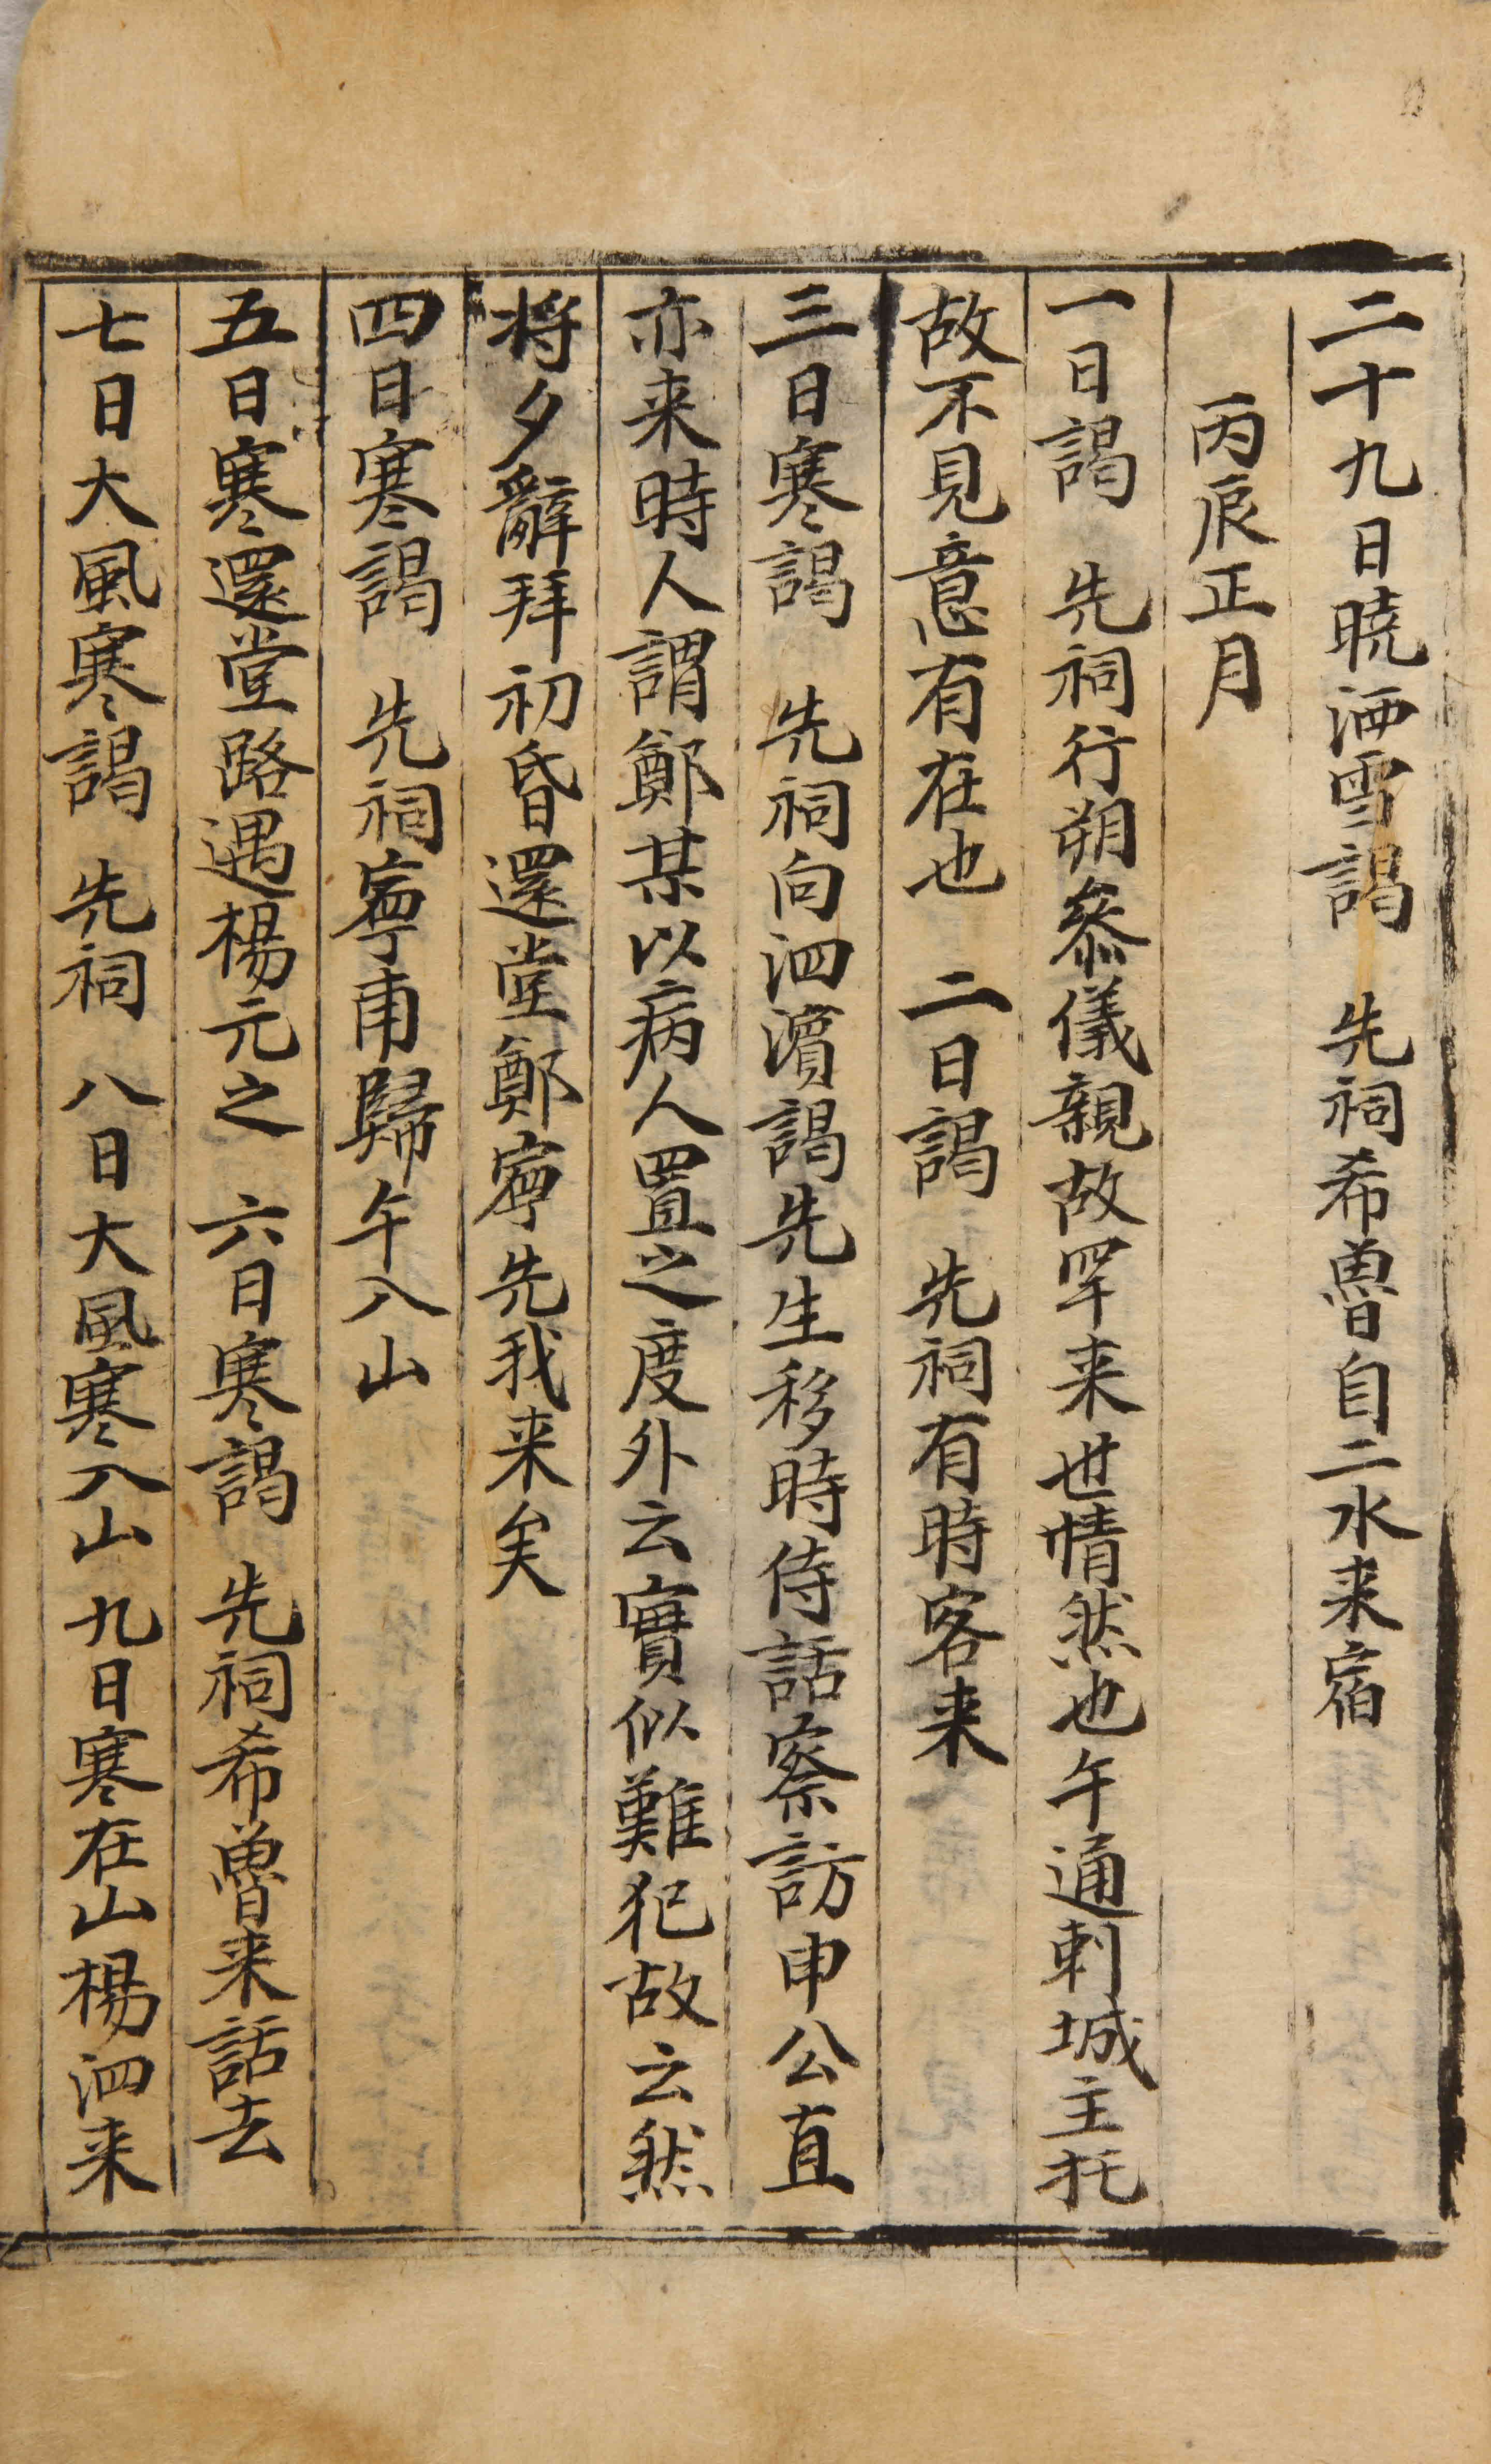 二十九日曉洒雪謁 先祠希魯自二水来宿
丙辰正月
一日謁 先祠行朔叅儀親故罕来世情然也午通刺城主托
故不見意有在也 二日謁 先祠有時客来
三日寒謁 先祠向泗濱謁先生移時侍話察訪申公直
亦来時人謂鄭某以病人置之度外云實似難犯故云然
将夕辭拜初昏還堂鄭寧先我来矣
四日寒謁 先祠寧甫歸午入山
五日寒還堂路遇楊元之 六日寒謁 先祠希魯来話去
七日大風寒謁 先祠 八日大風寒入山九日寒在山楊泗来